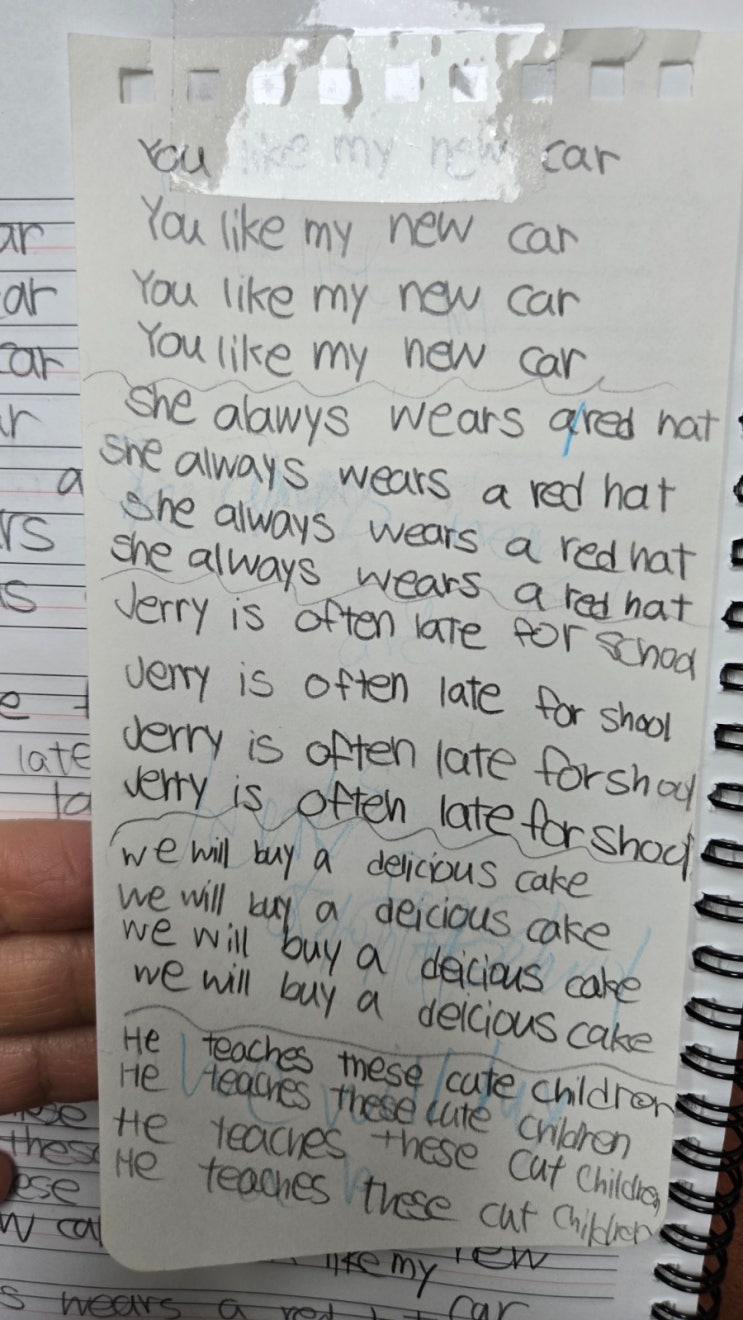 You like my new car
You like my new car
You like my new car
You like my new car
she alawys wears a red hat
she always wears a red hat
she always wears a red hat
she always wears a red hat
Jerry is often late for school
Jerry is often late for shool
Jerry is often late for shool
Jerry is often late for shool
we will buy a delicious cake
we will buy a deicious cake
we will buy a deicious cake
we will buy a delcious cake
He teaches these cute children
He teaches these cute children
He teaches these cut children
He teaches these cut children
ar
ar
car
r
a
rs
s
e
late
la
these
ese
w ca
like my new
s wears a red hat car